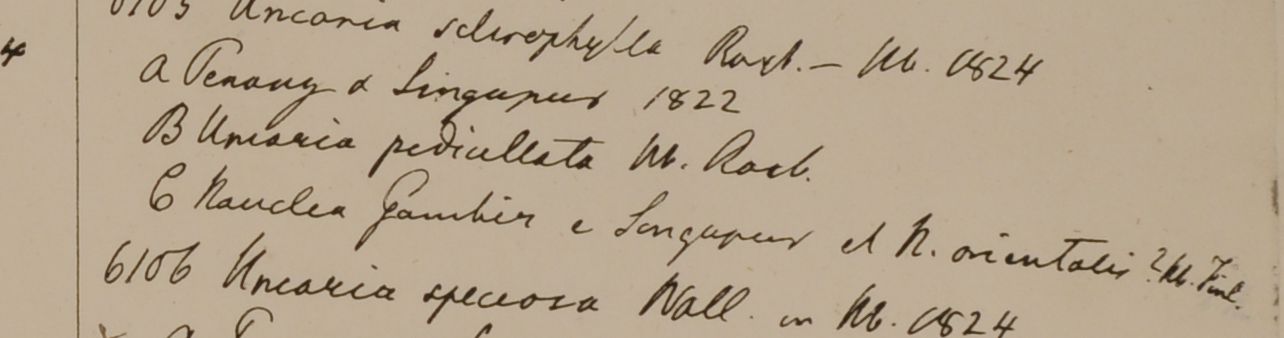 4
6105 Uncaria sclerophylla Roxb. – Hb. 1824
a Penang & Singapur 1822
B Uncaria pedicellata Hb. Roxb.
C Nauclea Gambir e Singapur et N. orientalis? Hb. Finl.
6106 Uncaria speciosa Wall. in Hb. 1824